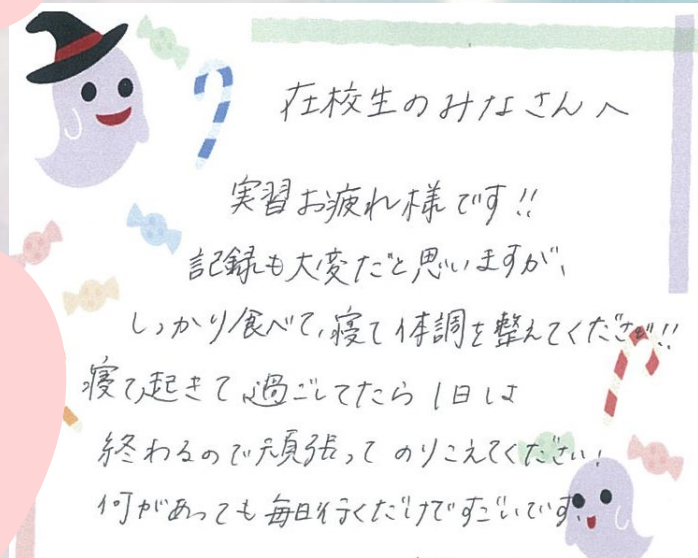 在校生のみなさんへ
実習お疲れ様です!!
記録も大変だと思いますが、
しっかり食べて、寝て体調を整えてください!!
寝て起きて過ごしてたら1日は
終わるので頑張ってのりこえてください!
何があっても毎日行くだけですごいです。